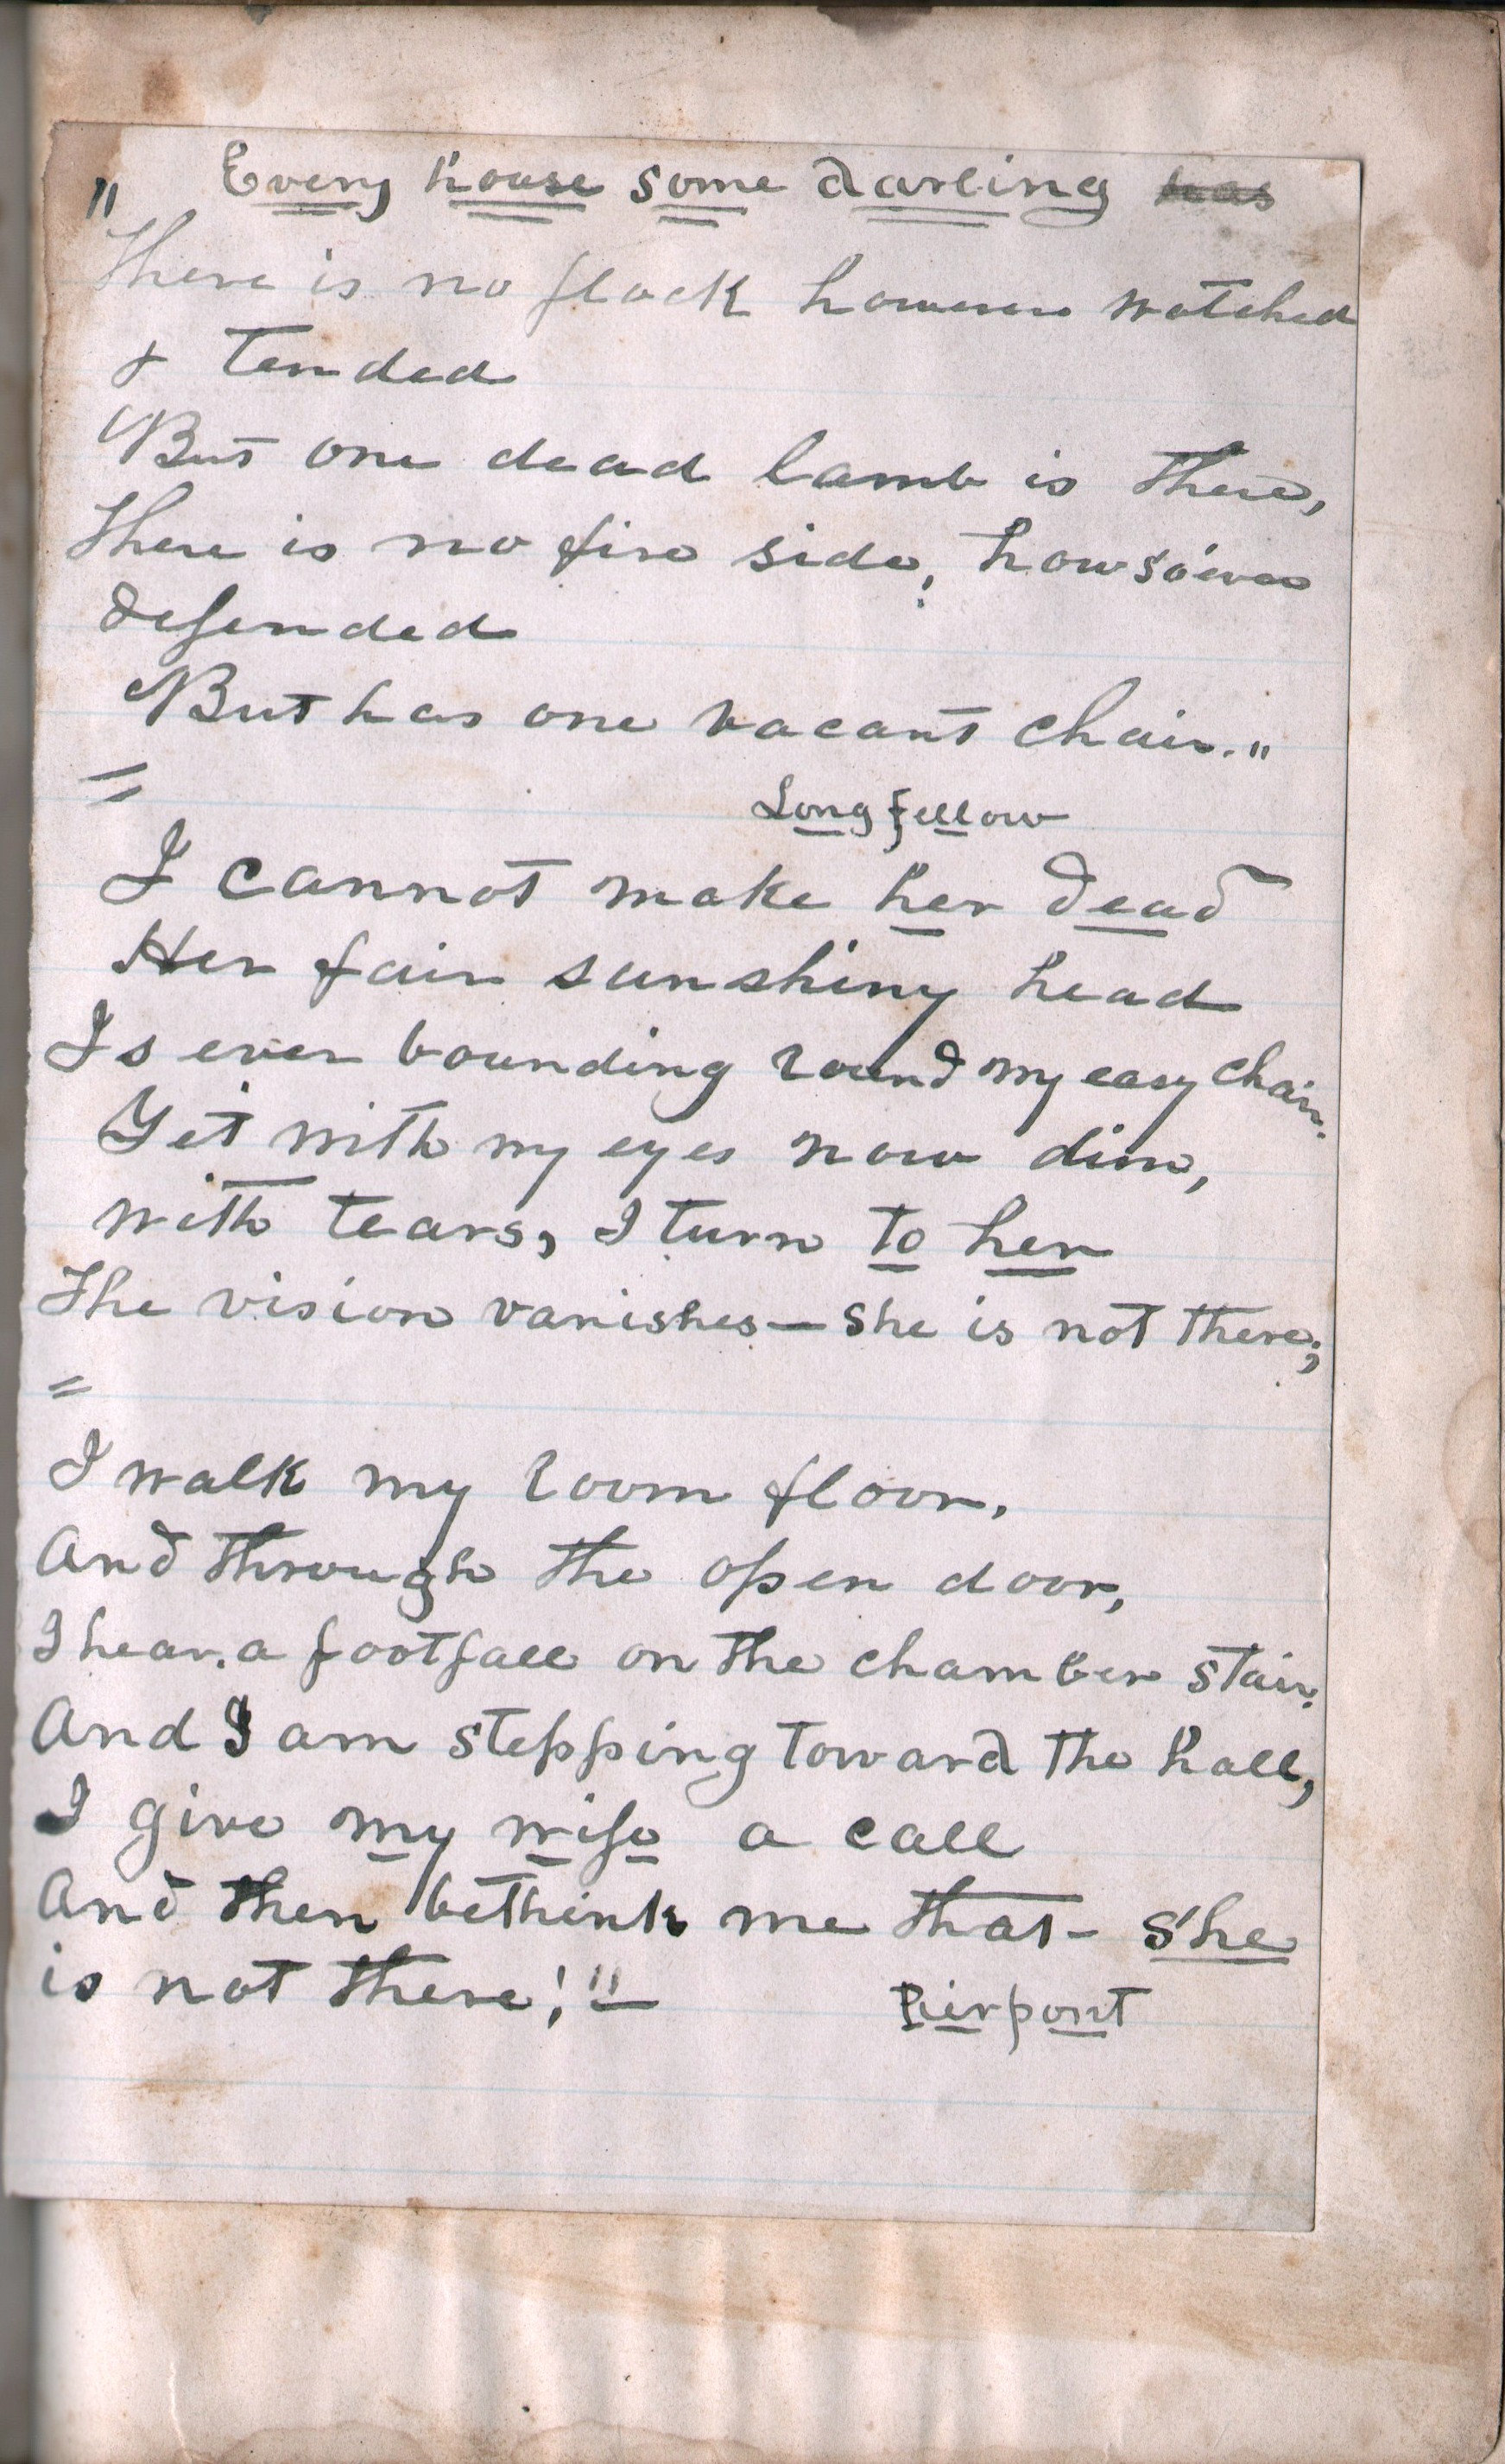 Every house some darling has
"
There is no flock however watched
& tended
But one dead lamb is there,
There is no fire side, howso'ever
defended
But has one vacant chair."
=
Longfellow
I cannot make her dead
Her fair sunshiny head
Is ever bounding round my easy chair.
Yet with my eyes now dim,
with tears, I turn to her
The vision vanishes — she is not there;
=
I walk my room floor,
And through the open door,
I hear a footfall on the chamber stair.
And I am stepping toward the hall,
I give my wife a call
And then bethink me that - she
is not there!"
Pierpont